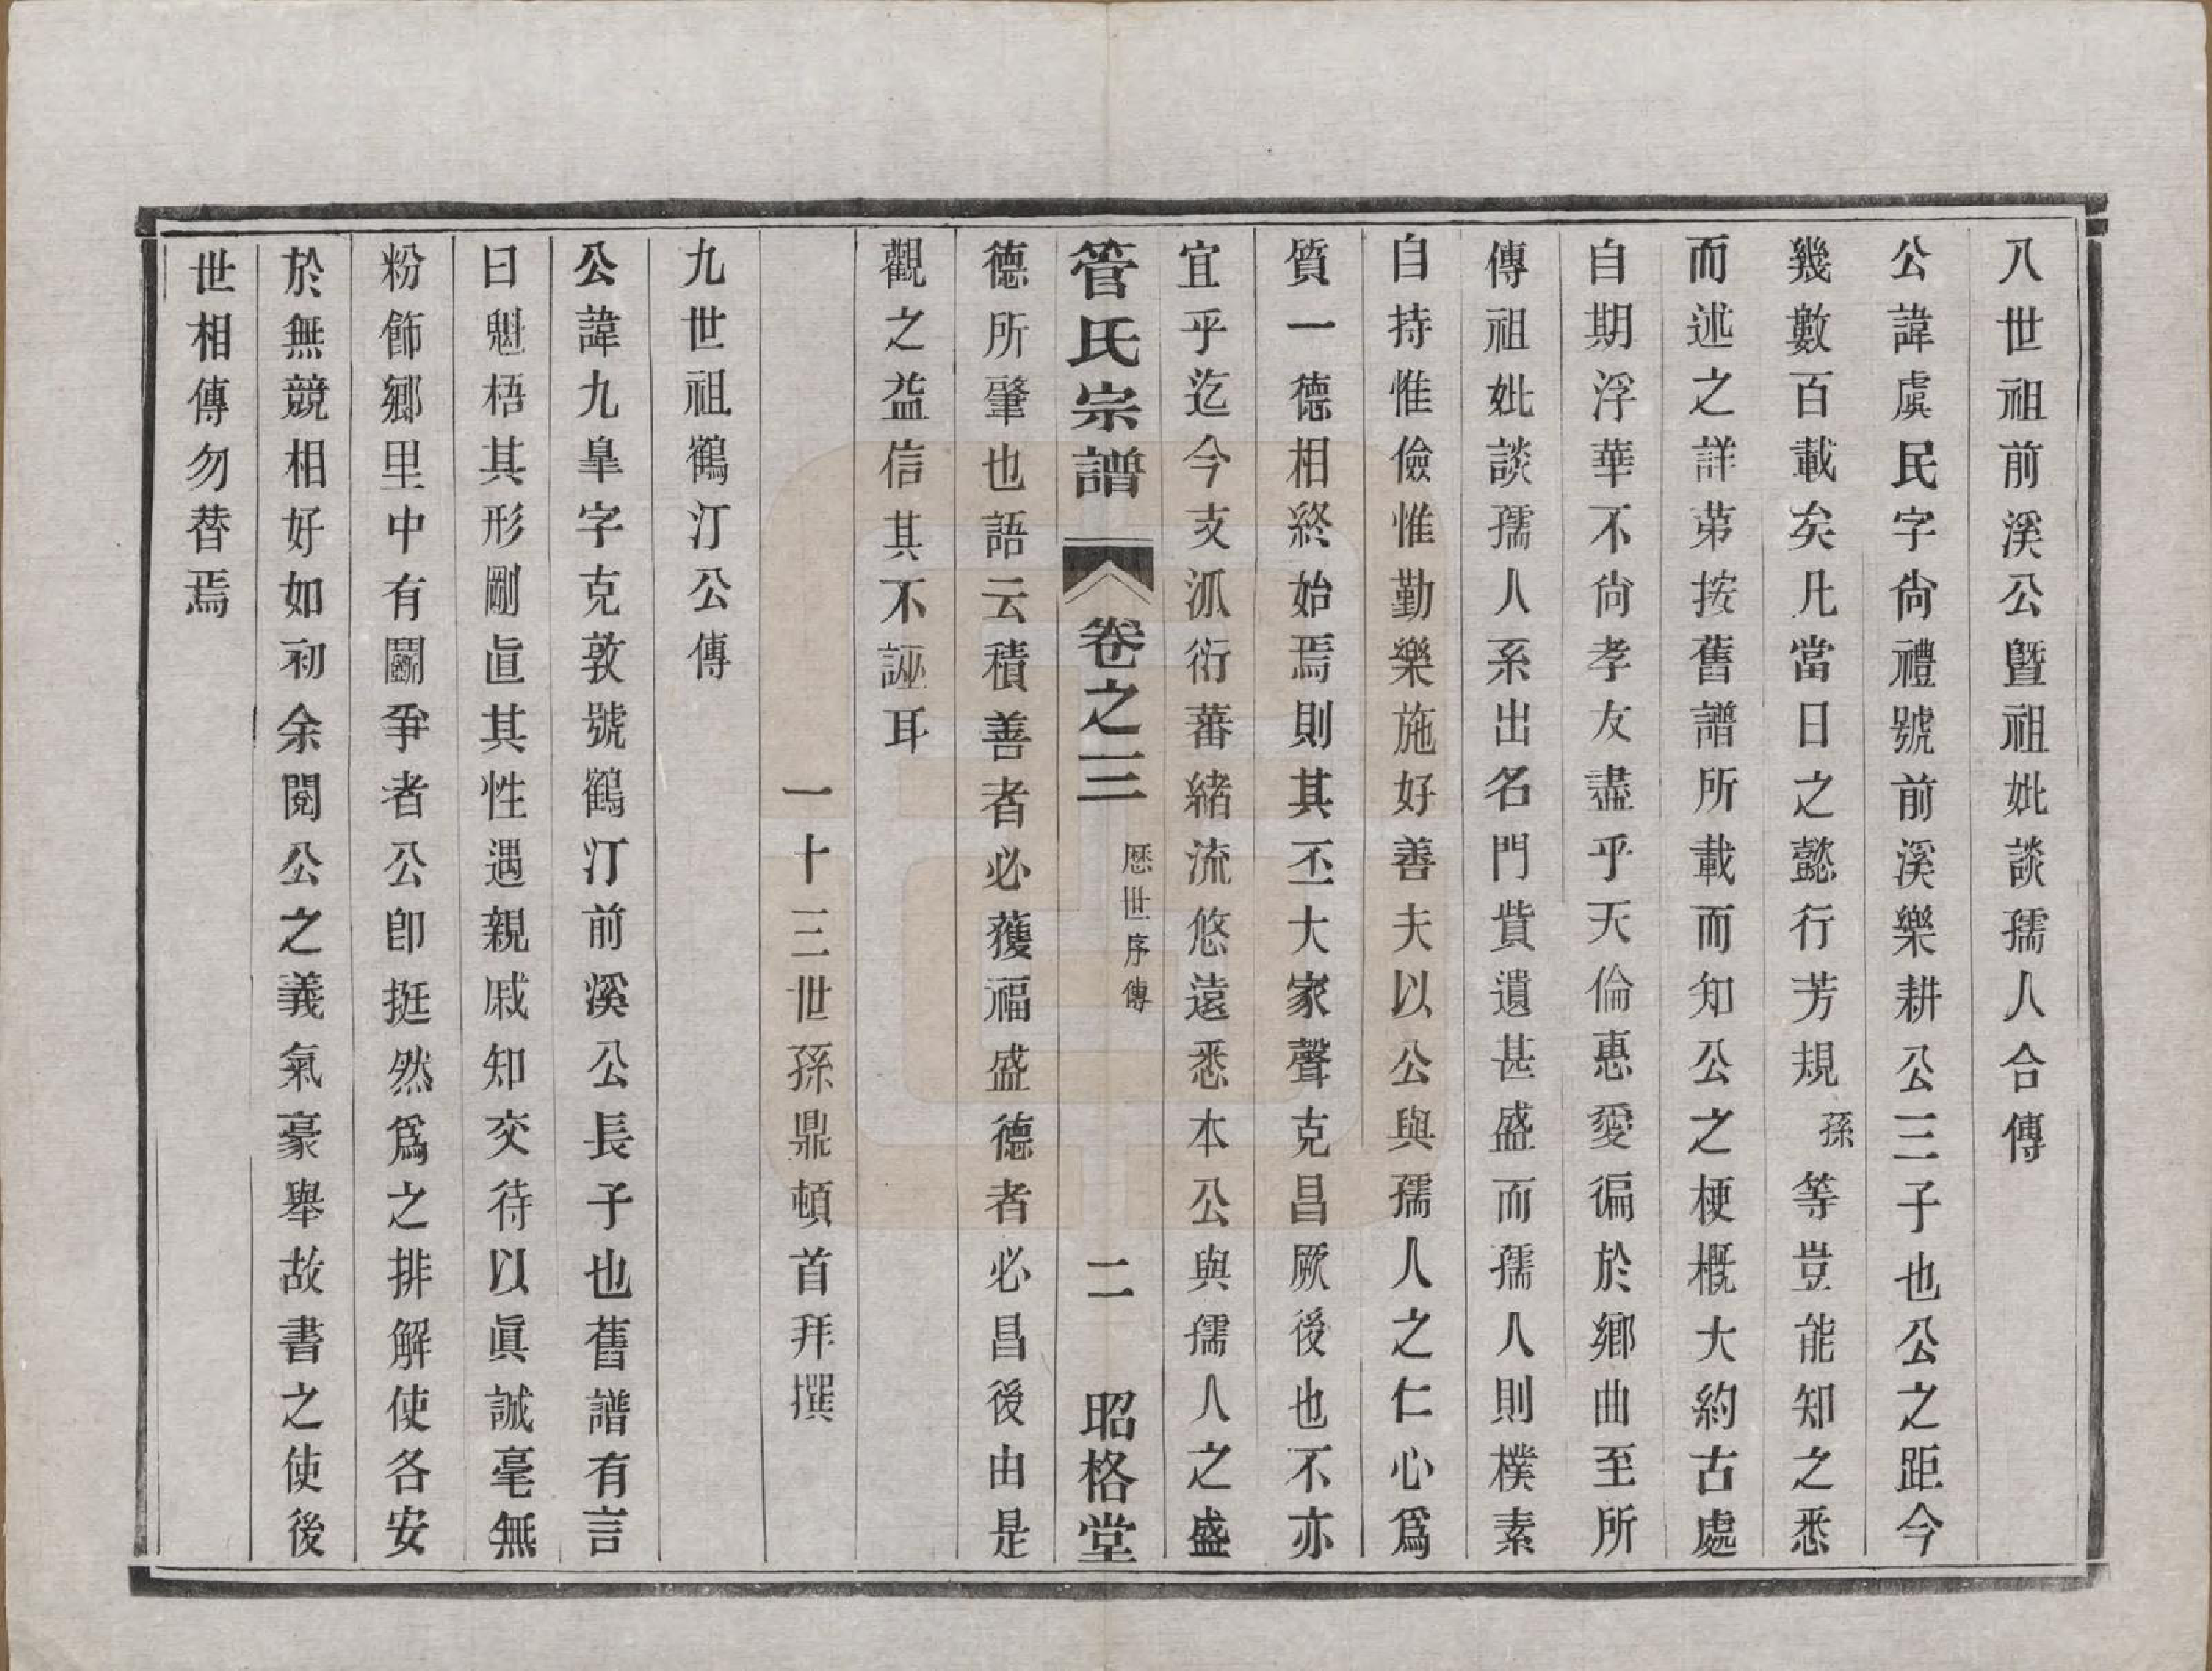 八世祖前溪公曁祖妣談孺人合傳
公諱虞民字尙禮號前溪樂耕公三子也公之距今
幾數百載矣凡當日之懿行芳規孫等豈能知之悉
而述之詳苐按舊譜所載而知公之梗概大約古處
自期浮華不尙孝友盡乎天倫惠愛徧於鄉曲至所
傳祖妣談孺人系出名門貲遺甚盛而孺人則樸素
自持惟儉惟勤樂施好善夫以公與孺人之仁心爲
質一德相終始焉則其丕大家聲克昌厥後也不亦
宜乎迄今支派衍蕃緒流悠遠悉本公與孺人之盛
管氏宗譜 卷之三 歷世序傳 二 昭格堂
德所肇也語云積善者必獲福盛德者必昌後由是
觀之益信其不誣耳
一十三世孫鼎頓首拜撰
九世祖鶴汀公傳
公諱九臯字克敦號鶴汀前溪公長子也舊譜有言
曰魁梧其形剛直其性遇親戚知交待以眞誠毫無
粉飾鄉里中有鬭爭者公卽挺然爲之排解使各安
於無競相好如初余閱公之義氣豪舉故書之使後
世相傳勿替焉